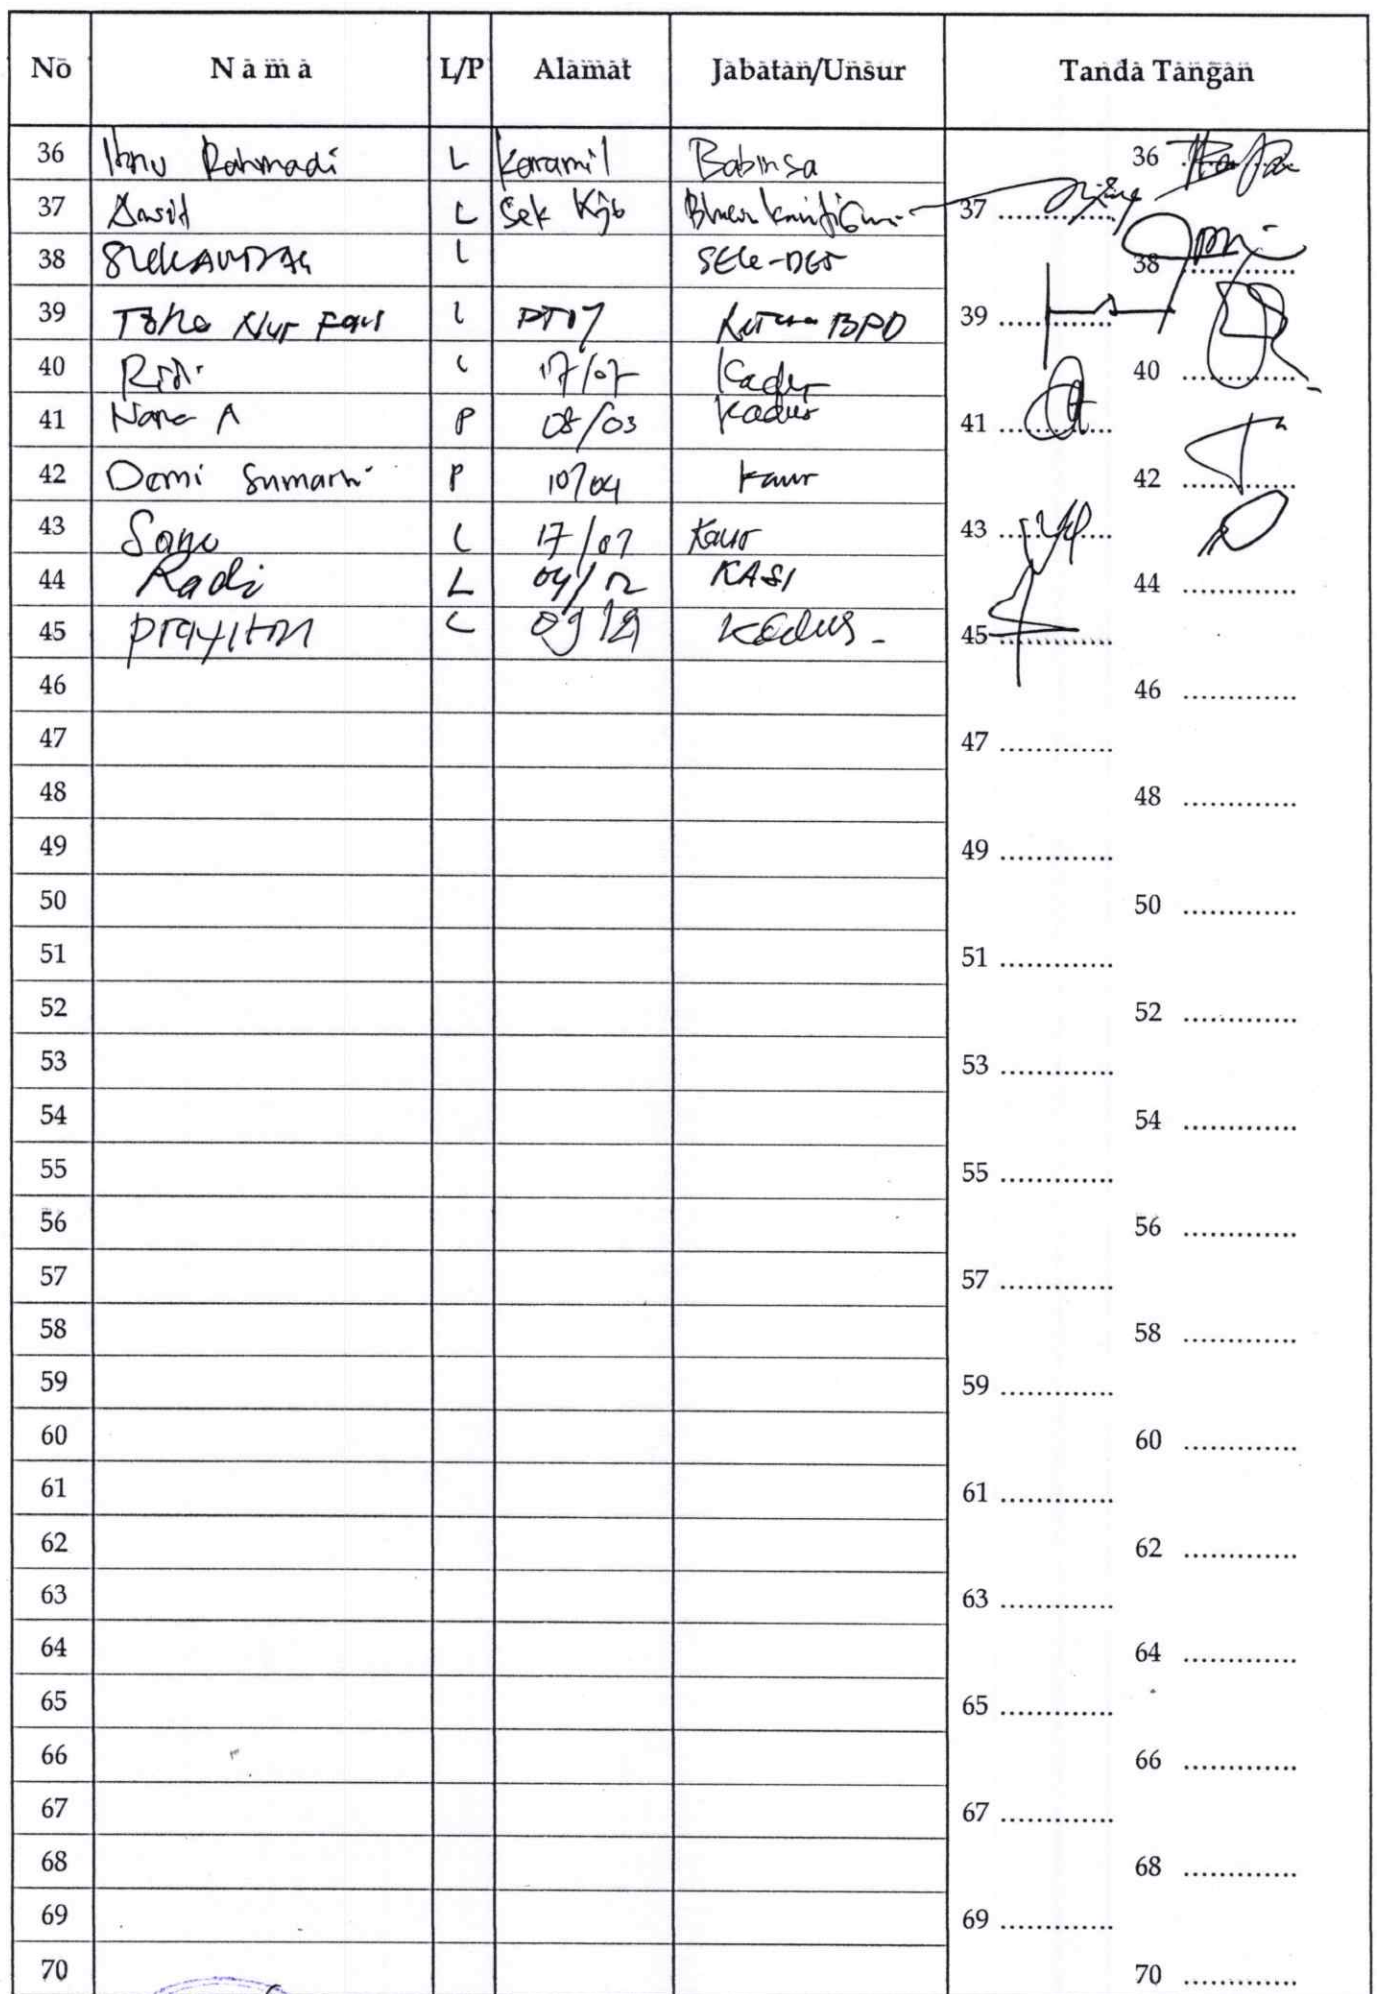 No Nama L/P Alamat Jabatan/Unsur Tanda Tangan
36 Ibnu Rahmadi L Koramil Babinsa 36
37 L Sek 37 ..............
38 L 38 ..............
39 Nur L Ketua BPD 39 ..............
40 L 17/07 Kadus 40 ..............
41 Nana A P 08/03 Kadus 41 ..............
42 Demi Sumarni P 10/04 Kaur 42 ..............
43 L 17/07 Kaur 43 ..............
44 Radi L 04/12 KASI 44 ..............
45 Prayitno L Kadus - 45 ..............
46 46 ..............
47 47 ..............
48 48 ..............
49 49 ..............
50 50 ..............
51 51 ..............
52 52 ..............
53 53 ..............
54 54 ..............
55 55 ..............
56 56 ..............
57 57 ..............
58 58 ..............
59 59 ..............
60 60 ..............
61 61 ..............
62 62 ..............
63 63 ..............
64 64 ..............
65 65 ..............
66 66 ..............
67 67 ..............
68 68 ..............
69 69 ..............
70 70 ..............